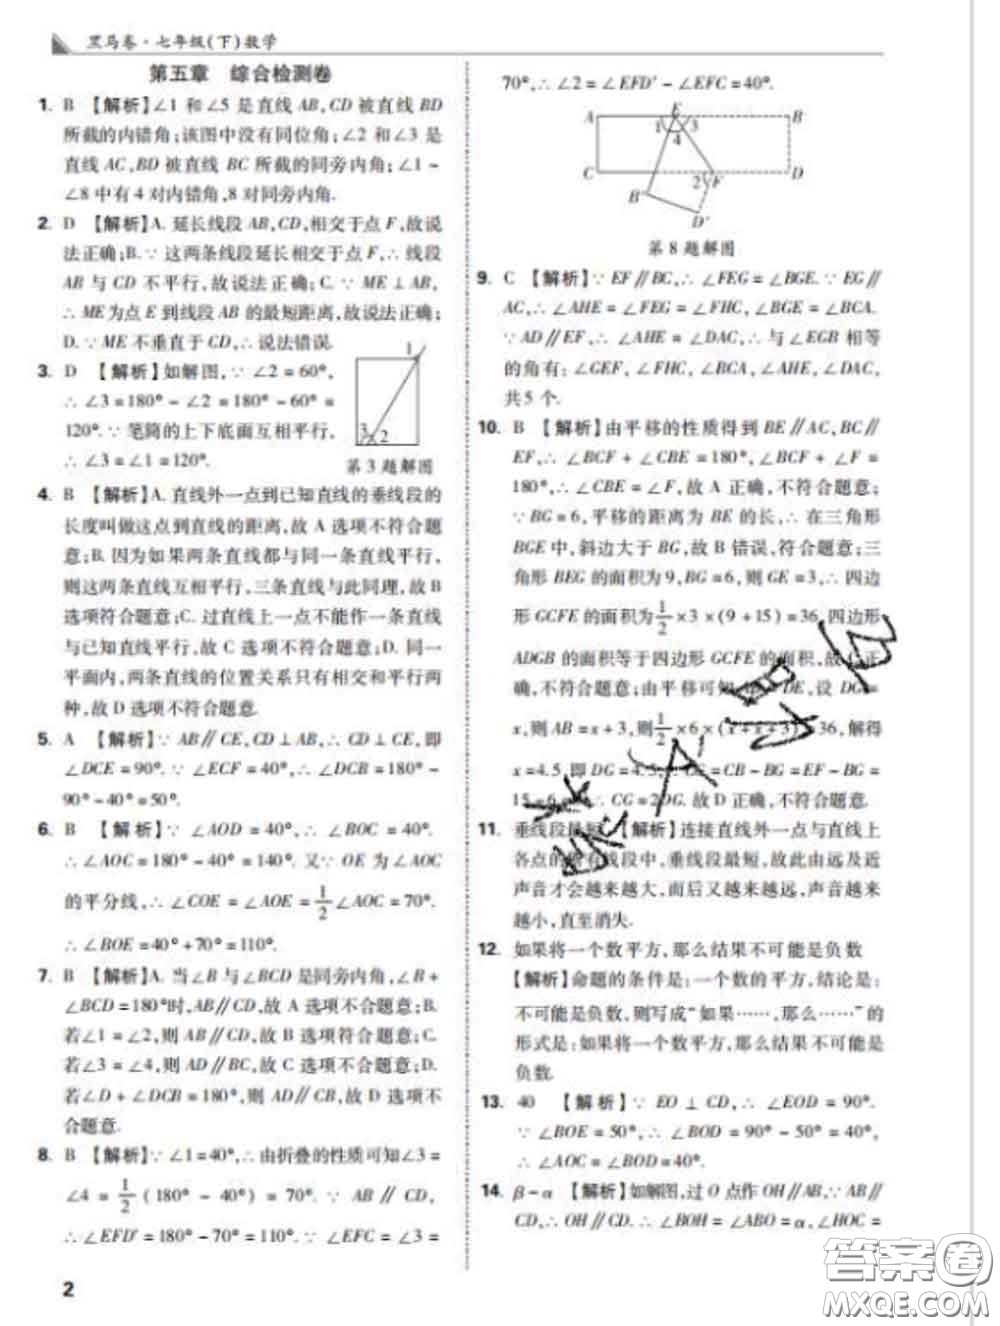 黑马卷·七年级(下)数学
第五章 综合检测卷
1. B 【解析】∠1 和∠5 是直线 AB,CD 被直线 BD
所截的内错角;该图中没有同位角;∠2 和∠3 是
直线 AC,BD 被直线 BC 所截的同旁内角;∠1~
∠8 中有 4 对内错角,8 对同旁内角.
2. D 【解析】A. 延长线段 AB,CD,相交于点 F,故说
法正确;B.∵ 这两条线段延长相交于点 F,∴ 线段
AB 与 CD 不平行,故说法正确;C.∵ ME⊥AB,
∴ ME 为点 E 到线段 AB 的最短距离,故说法正确;
D.∵ ME 不垂直于 CD,∴ 说法错误.
3. D 【解析】如解图,∵ ∠2 = 60°,
∴ ∠3 = 180° - ∠2 = 180° - 60° =
120°.∵ 笔筒的上下底面互相平行,
∴ ∠3 = ∠1 = 120°.
1
3 2
第 3 题解图
4. B 【解析】A. 直线外一点到已知直线的垂线段的
长度叫做这点到直线的距离,故 A 选项不符合题
意;B. 因为如果两条直线都与同一条直线平行,
则这两条直线互相平行,三条直线与此同理,故 B
选项符合题意;C. 过直线上一点不能作一条直线
与已知直线平行,故 C 选项不符合题意;D. 同一
平面内,两条直线的位置关系只有相交和平行两
种,故 D 选项不符合题意.
5. A 【解析】∵ AB∥CE,CD⊥AB,∴ CD⊥CE,即
∠DCE = 90°.∵ ∠ECF = 40°,∴ ∠DCB = 180° -
90° - 40° = 50°.
6. B 【解析】∵ ∠AOD = 40°,∴ ∠BOC = 40°.
∴ ∠AOC = 180° - 40° = 140°. 又∵ OE 为∠AOC
的平分线,∴ ∠COE = ∠AOE = 1/2 ∠AOC = 70°.
∴ ∠BOE = 40° + 70° = 110°.
7. B 【解析】A. 当∠B 与∠BCD 是同旁内角,∠B +
∠BCD = 180°时,AB∥CD,故 A 选项不合题意;B.
若∠1 = ∠2,则 AB∥CD,故 B 选项符合题意;C.
若∠3 = ∠4,则 AD∥BC,故 C 选项不合题意;D.
若∠D + ∠DCB = 180°,则 AD∥CB,故 D 选项不
合题意.
8. B 【解析】∵ ∠1 = 40°,∴ 由折叠的性质可知∠3 =
∠4 = 1/2 (180° - 40°) = 70°.∵ AB∥CD,
∴ ∠EFD' = 180° - 70° = 110°.∵ ∠EFC = ∠3 =
2
70°,∴ ∠2 = ∠EFD' - ∠EFC = 40°.
A E B
1 3
4
C 2 F D
B'
D'
第 8 题解图
9. C 【解析】∵ EF∥BC,∴ ∠FEG = ∠BGE.∵ EG∥
AC,∴ ∠AHE = ∠FEG = ∠FHC,∠BGE = ∠BCA.
∵ AD∥EF,∴ ∠AHE = ∠DAC,∴ 与∠EGB 相等
的角有: ∠GEF, ∠FHC, ∠BCA, ∠AHE, ∠DAC,
共 5 个.
10. B 【解析】由平移的性质得到 BE∥AC,BC∥
EF,∴ ∠BCF + ∠CBE = 180°,∠BCF + ∠F =
180°,∴ ∠CBE = ∠F,故 A 正确,不符合题意;
∵ BG = 6,平移的距离为 BE 的长,∴ 在三角形
BGE 中,斜边大于 BG,故 B 错误,符合题意;三
角形 BEG 的面积为 9,BG = 6,则 GE = 3,∴ 四边
形 GCFE 的面积为 1/2 × 3 × (9 + 15) = 36,四边形
ADGB 的面积等于四边形 GCFE 的面积,故 C 正
确,不符合题意;由平移可知 DE,设 DG =
x,则 AB = x + 3,则 1/2 × 6 × (x + x + 3) = 36,解得
x = 4.5,即 DG = 4.5, CG = CB - BG = EF - BG =
15 - 6 ∴ CG = 2DG. 故 D 正确,不符合题意.
11. 垂线段最短 【解析】连接直线外一点与直线上
各点的所有线段中,垂线段最短,故此由远及近
声音才会越来越大,而后又越来越远,声音越来
越小,直至消失.
12. 如果将一个数平方,那么结果不可能是负数
【解析】命题的条件是:一个数的平方,结论是:
不可能是负数,则写成“如果……,那么……”的
形式是:如果将一个数平方,那么结果不可能是
负数.
13. 40 【解析】∵ EO⊥CD,∴ ∠EOD = 90°.
∵ ∠BOE = 50°,∴ ∠BOD = 90° - 50° = 40°,
∴ ∠AOC = ∠BOD = 40°.
14. β - α 【解析】如解图,过 O 点作 OH∥AB,∵ AB∥
CD,∴ OH∥CD.∴ ∠BOH = ∠ABO = α,∠HOC =
答案圈
MXQE.COM